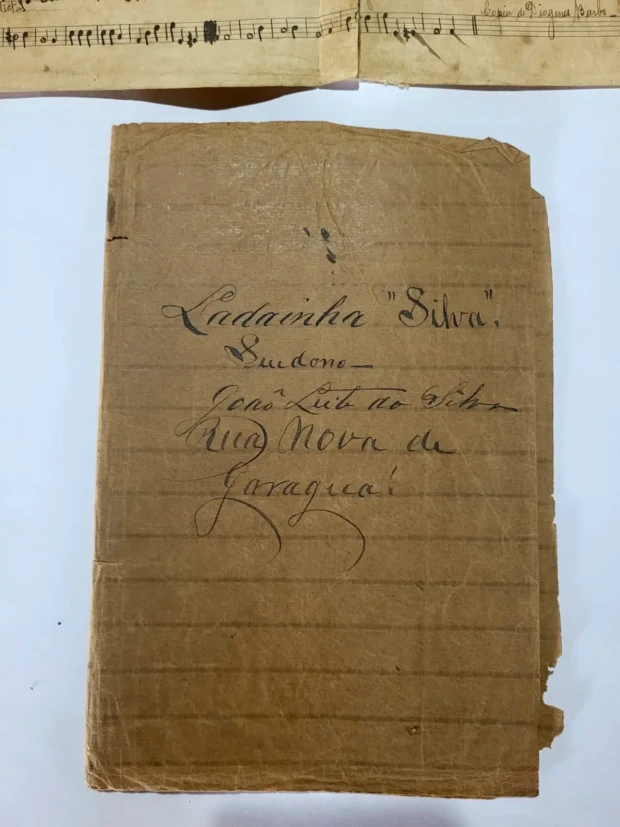 Copia de Diogenes Barbo_
Ladainha "Silva".
Seu dono —
João Leite da Silva
Rua Nova de
Jaraguá!